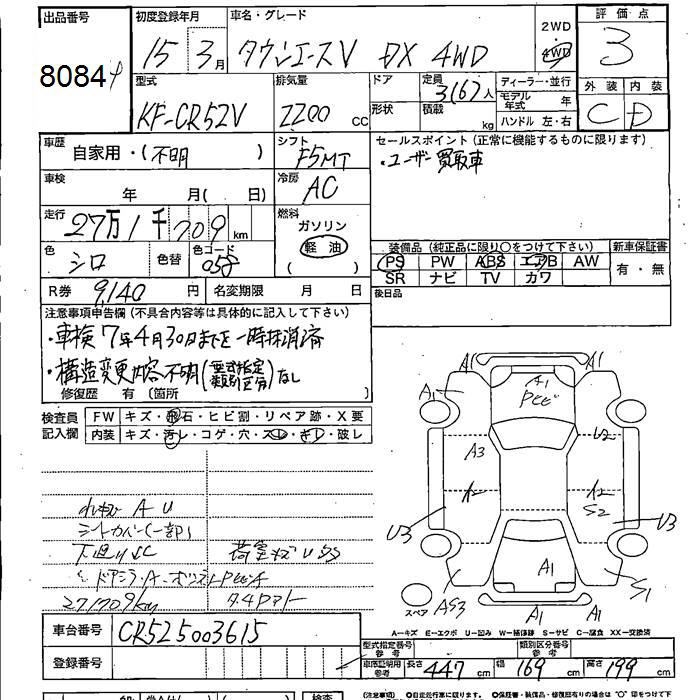 出品番号 初度登録年月 車名・グレード 2WD 評価点
8084 15 3月 タウンエースV DX 4WD 4WD 3
型式 排気量 ドア 定員 ディーラー・並行 外装 内装
KF-CR52V 2200 CC 形状 3(6)人 積載 kg モデル年式 年 ハンドル 左・右 C D
車歴 自家用・(不明) シフト F5MT セールスポイント(正常に機能するものに限ります)
・ユーザー買取車
車検 年 月( 日) 冷房 AC
走行 27万1千709km 燃料 ガソリン
軽油
( )
色 シロ 色替 色コード 058 装備品(純正品に限り○をつけて下さい) 新車保証書
PS PW ABS エアB AW 有・無
SR ナビ TV カワ
R券 9,140円 名変期限 月 日 後日品
注意事項申告欄(不具合内容等は具体的に記入して下さい)
・車検7年4月30日まで一時抹消済
・構造変更内容不明(型式指定 類別区分)なし
修復歴 有(箇所 )
検査員 FW キズ・飛石・ヒビ割・リペア跡・X要
記入欄 内装 キズ・汚レ・コゲ・穴・スレ・キレ・破レ
A1 A1 A1 A1
A3 U2
A2 A2 S2
U3 U3
A1
AS3 A1 A1 S1
スペア
A U
シートカバー(一部)
荷室キズUSS
271709km
A-キズ E-エクボ U-凹み W-補修跡 S-サビ C-腐食 XX-交換済
車台番号 CR525003615
登録番号
型式指定番号 参考 類別区分番号 参考
車庫証明用 参考 長さ 447cm 幅 169cm 高さ 199cm